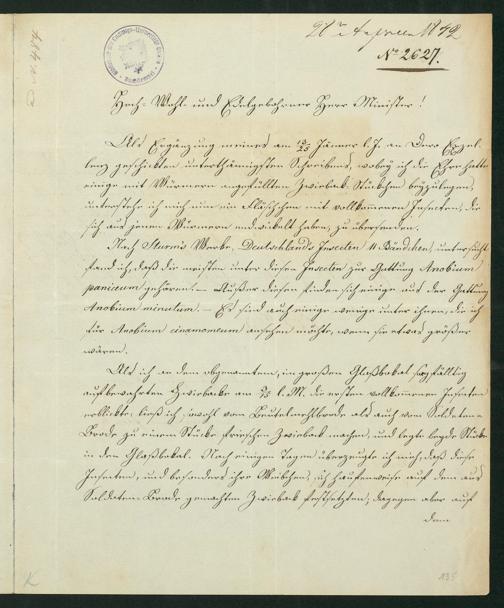 1842
No 2627.
Hoch- Wohl- und Edelgebohrner Herr Minister!
Als Ergänzung meines am 13/25 Jänner l. J. an Dero Exzel-
lenz geschickten unterthänigsten Schreibens, wobey ich die Ehre hatte
einige mit Würmern angefüllten Zwieback-Stückchen beyzulegen,
unterstehe ich mich nun, ein Fläschchen mit vollkommenen Insecten, die
sich aus jenen Würmern entwickelt haben, zu übersenden.
Nach Sturm's Werke, Deutschlands Insecten 11 Bändchen, untersucht
fand ich, daß die meisten unter diesen Insecten zur Gattung Anobium
paniceum gehören. — Außer diesen finden sich einige aus der Gattung
Anobium minutum. — Es sind auch einige wenige unter ihnen, die ich
für Anobium cinamomeum ansehen möchte, wenn sie etwas größer
wären.
Als ich an dem obgenannten, in großen Glaßbokal sorgfältig
aufbewahrten Zwiebacke am l. M. die ersten vollkommenen Insecten
erblickte, ließ ich, sowohl vom Beutelmehlbrode als auch vom Soldaten-
Brode zu einem Stücke frischen Zwieback machen, und legte beyde Stücke
in den Glaßbokal. Nach einigen Tagen überzeugte ich mich, daß diese
Insecten, und besonders ihre Weibchen, sich haufenweise auf dem aus
Soldaten-Brode gemachten Zwieback festsetzten, dagegen aber auf
dem
135